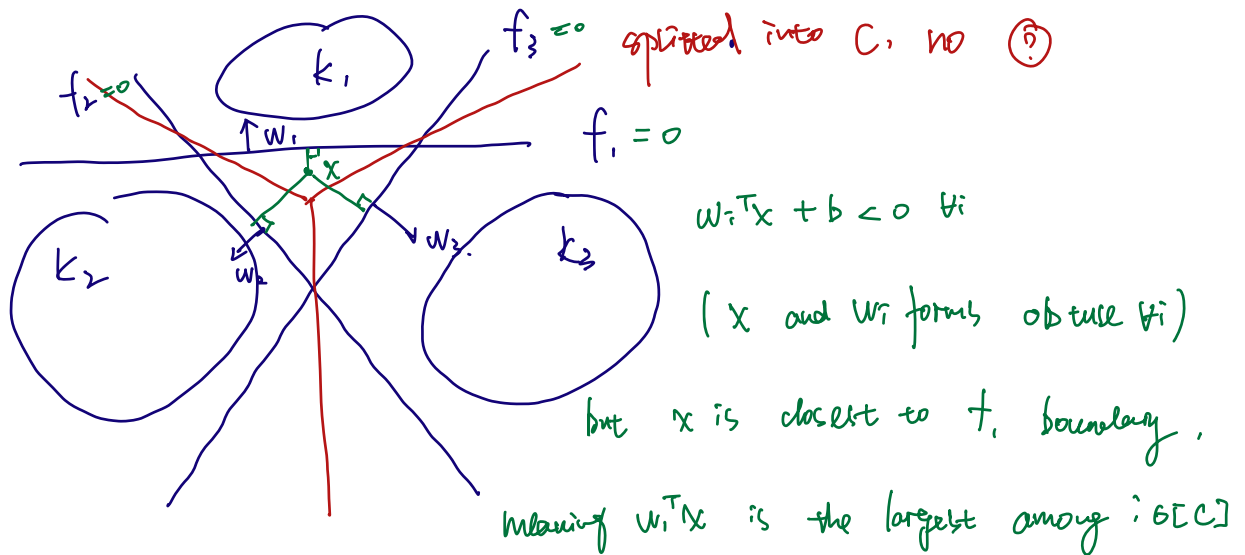 f₃ = 0 splitted into C, no ?
k₁
f₂ = 0
w₁
f₁ = 0
x
wᵢᵀx + b < 0 ∀i
k₂
w₂
w₃.
k₃
( x and wᵢ forms obtuse ∀i )
but x is closest to f₁ boundary.
meaning w₁ᵀx is the largest among i ∈ [C]